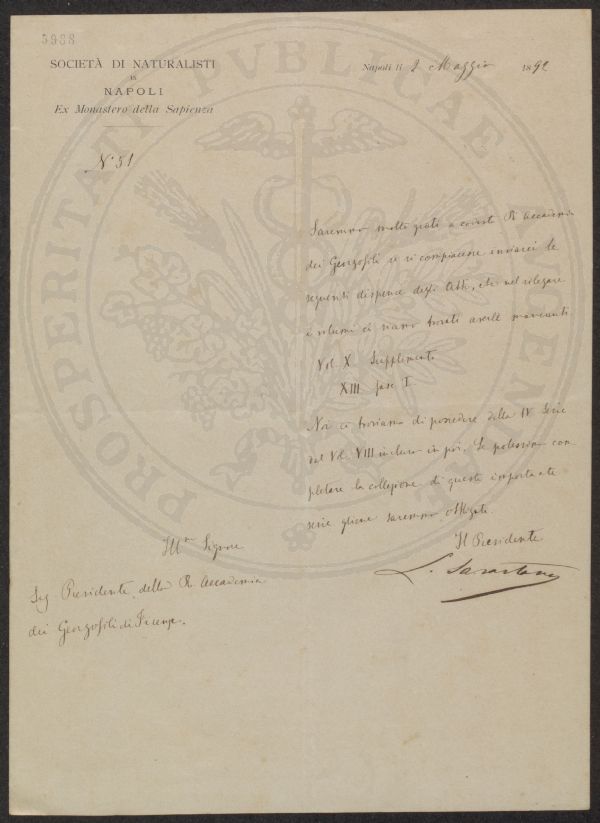 5988
SOCIETÀ DI NATURALISTI
IN
NAPOLI
Ex Monastero della Sapienza
Napoli li 2 Maggio 1892
N.° 51
Saremmo molto grati a codesta R. Accademia
dei Georgofili se si compiacesse inviarci le
seguenti dispense degli Atti, che nel rilegare
i volumi ci siamo trovati averle mancanti
Vol. X Supplemento
XIII fasc I
Noi ci troviamo di possedere della IV Serie
dal Vol. VIII incluso in poi. Se potessimo com
pletare la collezione di questa importante
serie gliene saremmo obbligati.
Il Presidente
L. Savastano
Ill.mo Signore
Sig Presidente della R. Accademia
dei Georgofili di Firenze.
PROSPERITATI PUBLICAE AUGENDAE